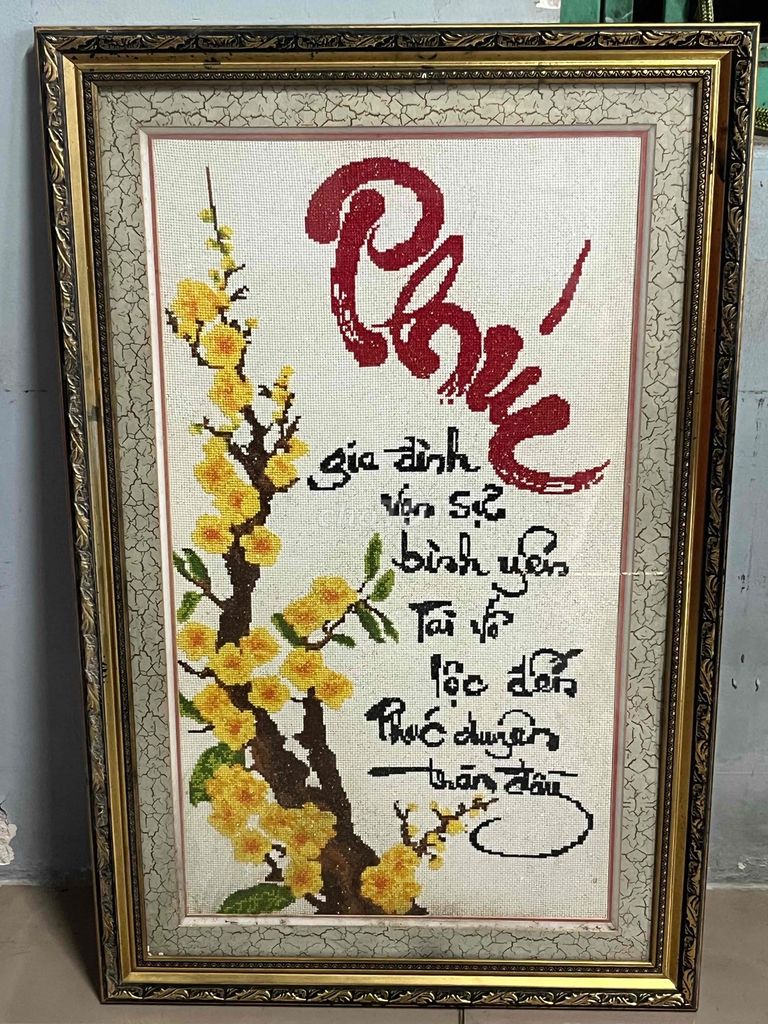 Phúc
gia đình
vạn sự
bình yên
Tài về
lộc đến
Phúc duyên
tràn đầy